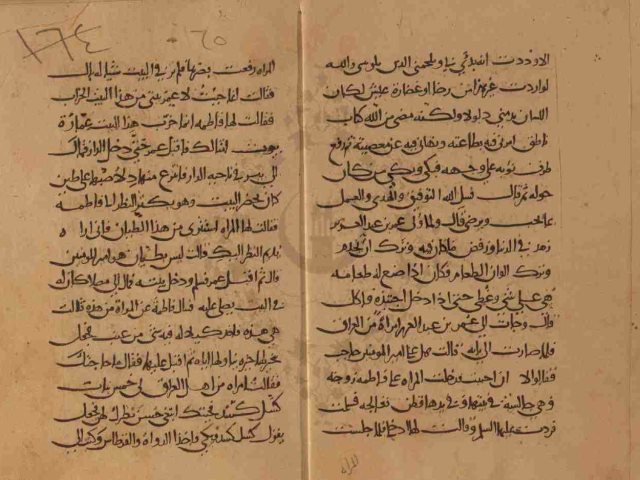 الا وددت انه بدئ بي ولحمتي الذين يلونني والله
لو اردت غير هذا من رخا او غضارة عيش لكان
اللسان به مني ذلولا ولكنه مضى من الله كتاب
ناطق امرني فيه بطاعته ونهاني فيه عن معصيته ثم رفع
طرف ثوبه على وجهه فبكى وبكى من كان
حوله ثم قال نسل الله التوفيق والهدى والعمل
بما يحب ويرضى قال ولما ولي عمر بن عبد العزيز
زهد في الدنيا ورفض ما كان فيه وترك ان يخدم
وترك الوان الطعام فكان اذا صنع له طعامه
هي على شي وغطي حتى اذا دخل اجتبذه فاكل
قال وجات الى عمر بن عبد العزيز امراة من العراق
فلما صارت الى بابه قالت هل على امير المومنين حاجب
فقالوا لا ان احببت فدخلت المراة على فاطمة زوجته
وهي جالسة في بيتها وفي يدها قطن تعالجه فسلمت
فردت عليها السلم وقالت لها ادخلي فلما جلست
المراة
المراة رفعت بصرها فلم تر في البيت شيا له بال
فقالت انما جيت لاعمر بيتي من هذا البيت الخراب
فقالت لها فاطمه انما خرب هذا البيت عمارة
بيوت امثالك فاقبل عمر حتى دخل الدار فمال
الى بير في ناحيه الدار فانتزع منها دلا فصبها على طين
كان بحضرة البيت وهو يكثر النظر الى فاطمه
فقالت لها المراة استتري من هذا الطيان فاني اراه
يديم النظر اليك قالت ليس بطيان هو امير المومنين
قال ثم اقبل عمر فسلم ودخل بيته فمال الى مصلا كان له
في البيت يصلي عليه فسال فاطمة عن المراة من هذه فقالت
هي هذه فاخذ مكتلا له فيه شي من عنب فجعل
يتخير لها خيره يناولها اياه ثم اقبل عليها فقال ما حاجتك
فقالت امراه من اهل العراق لي خمس بنات
كسل كسد فجيتك ابتغي حسن نظرك لهن فجعل
يقول كسل كسد وبكى واخذ الدواة والقرطاس وكتب الى
١٦٤
٦٥